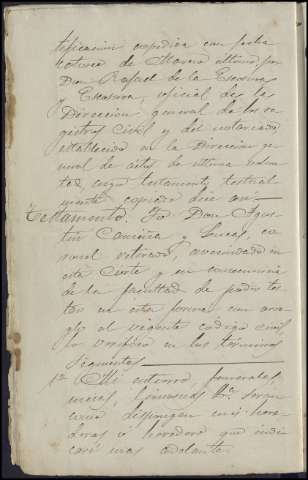 tificacion expedida con fecha
catorce de Marzo ultimo, por
Don Rafael de la Escosura
y Escosura, oficial de la
Direccion general de los re
gistros Civil y del notariado,
establecido en la Direccion ge
neral de actos de ultima volun
tad, cuyo testamento testual
mente copiado dice asi
Testamento. Yo Don Agus
tin y Lucas, co
ronel retirado, avecindado en
esta Corte y en consecuencia
de la facultad de poder tes
tar en esta forma con arre
glo al vigente codigo civil
lo verifico en los terminos
siguientes
1ª Mi entierro, funerales,
misas, limosnas &ª. segun
como dispongan mis here
deros ó heredera que indi
caré mas adelante.